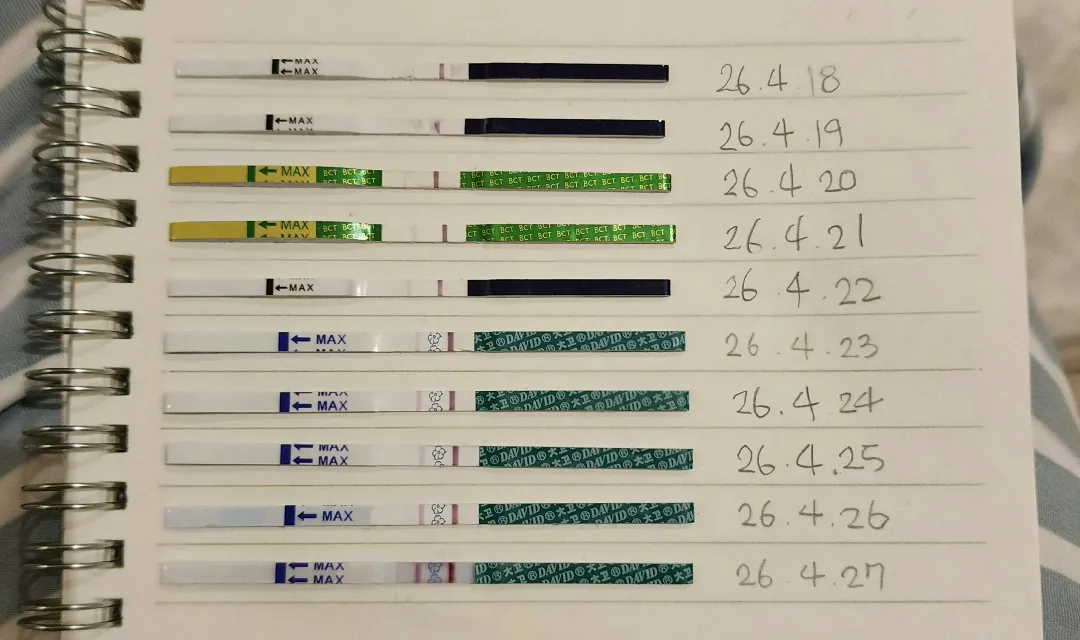 MAX
MAX
26.4.18
MAX
26.4.19
MAX BCT BCT BCT BCT BCT BCT BCT
26.4 20
MAX BCT BCT BCT BCT BCT BCT BCT
26.4.21
MAX
26.4.22
MAX ®DAVID®大卫®DAVID®大卫®DAVID®大卫
26.4.23
MAX
MAX ®DAVID®大卫®DAVID®大卫
26.4.24
MAX
MAX ®DAVID®大卫®DAVID®大卫
26.4.25
MAX ®DAVID®大卫®DAVID®大卫
26.4.26
MAX
MAX ®DAVID®大卫®DAVID®大卫
26.4.27